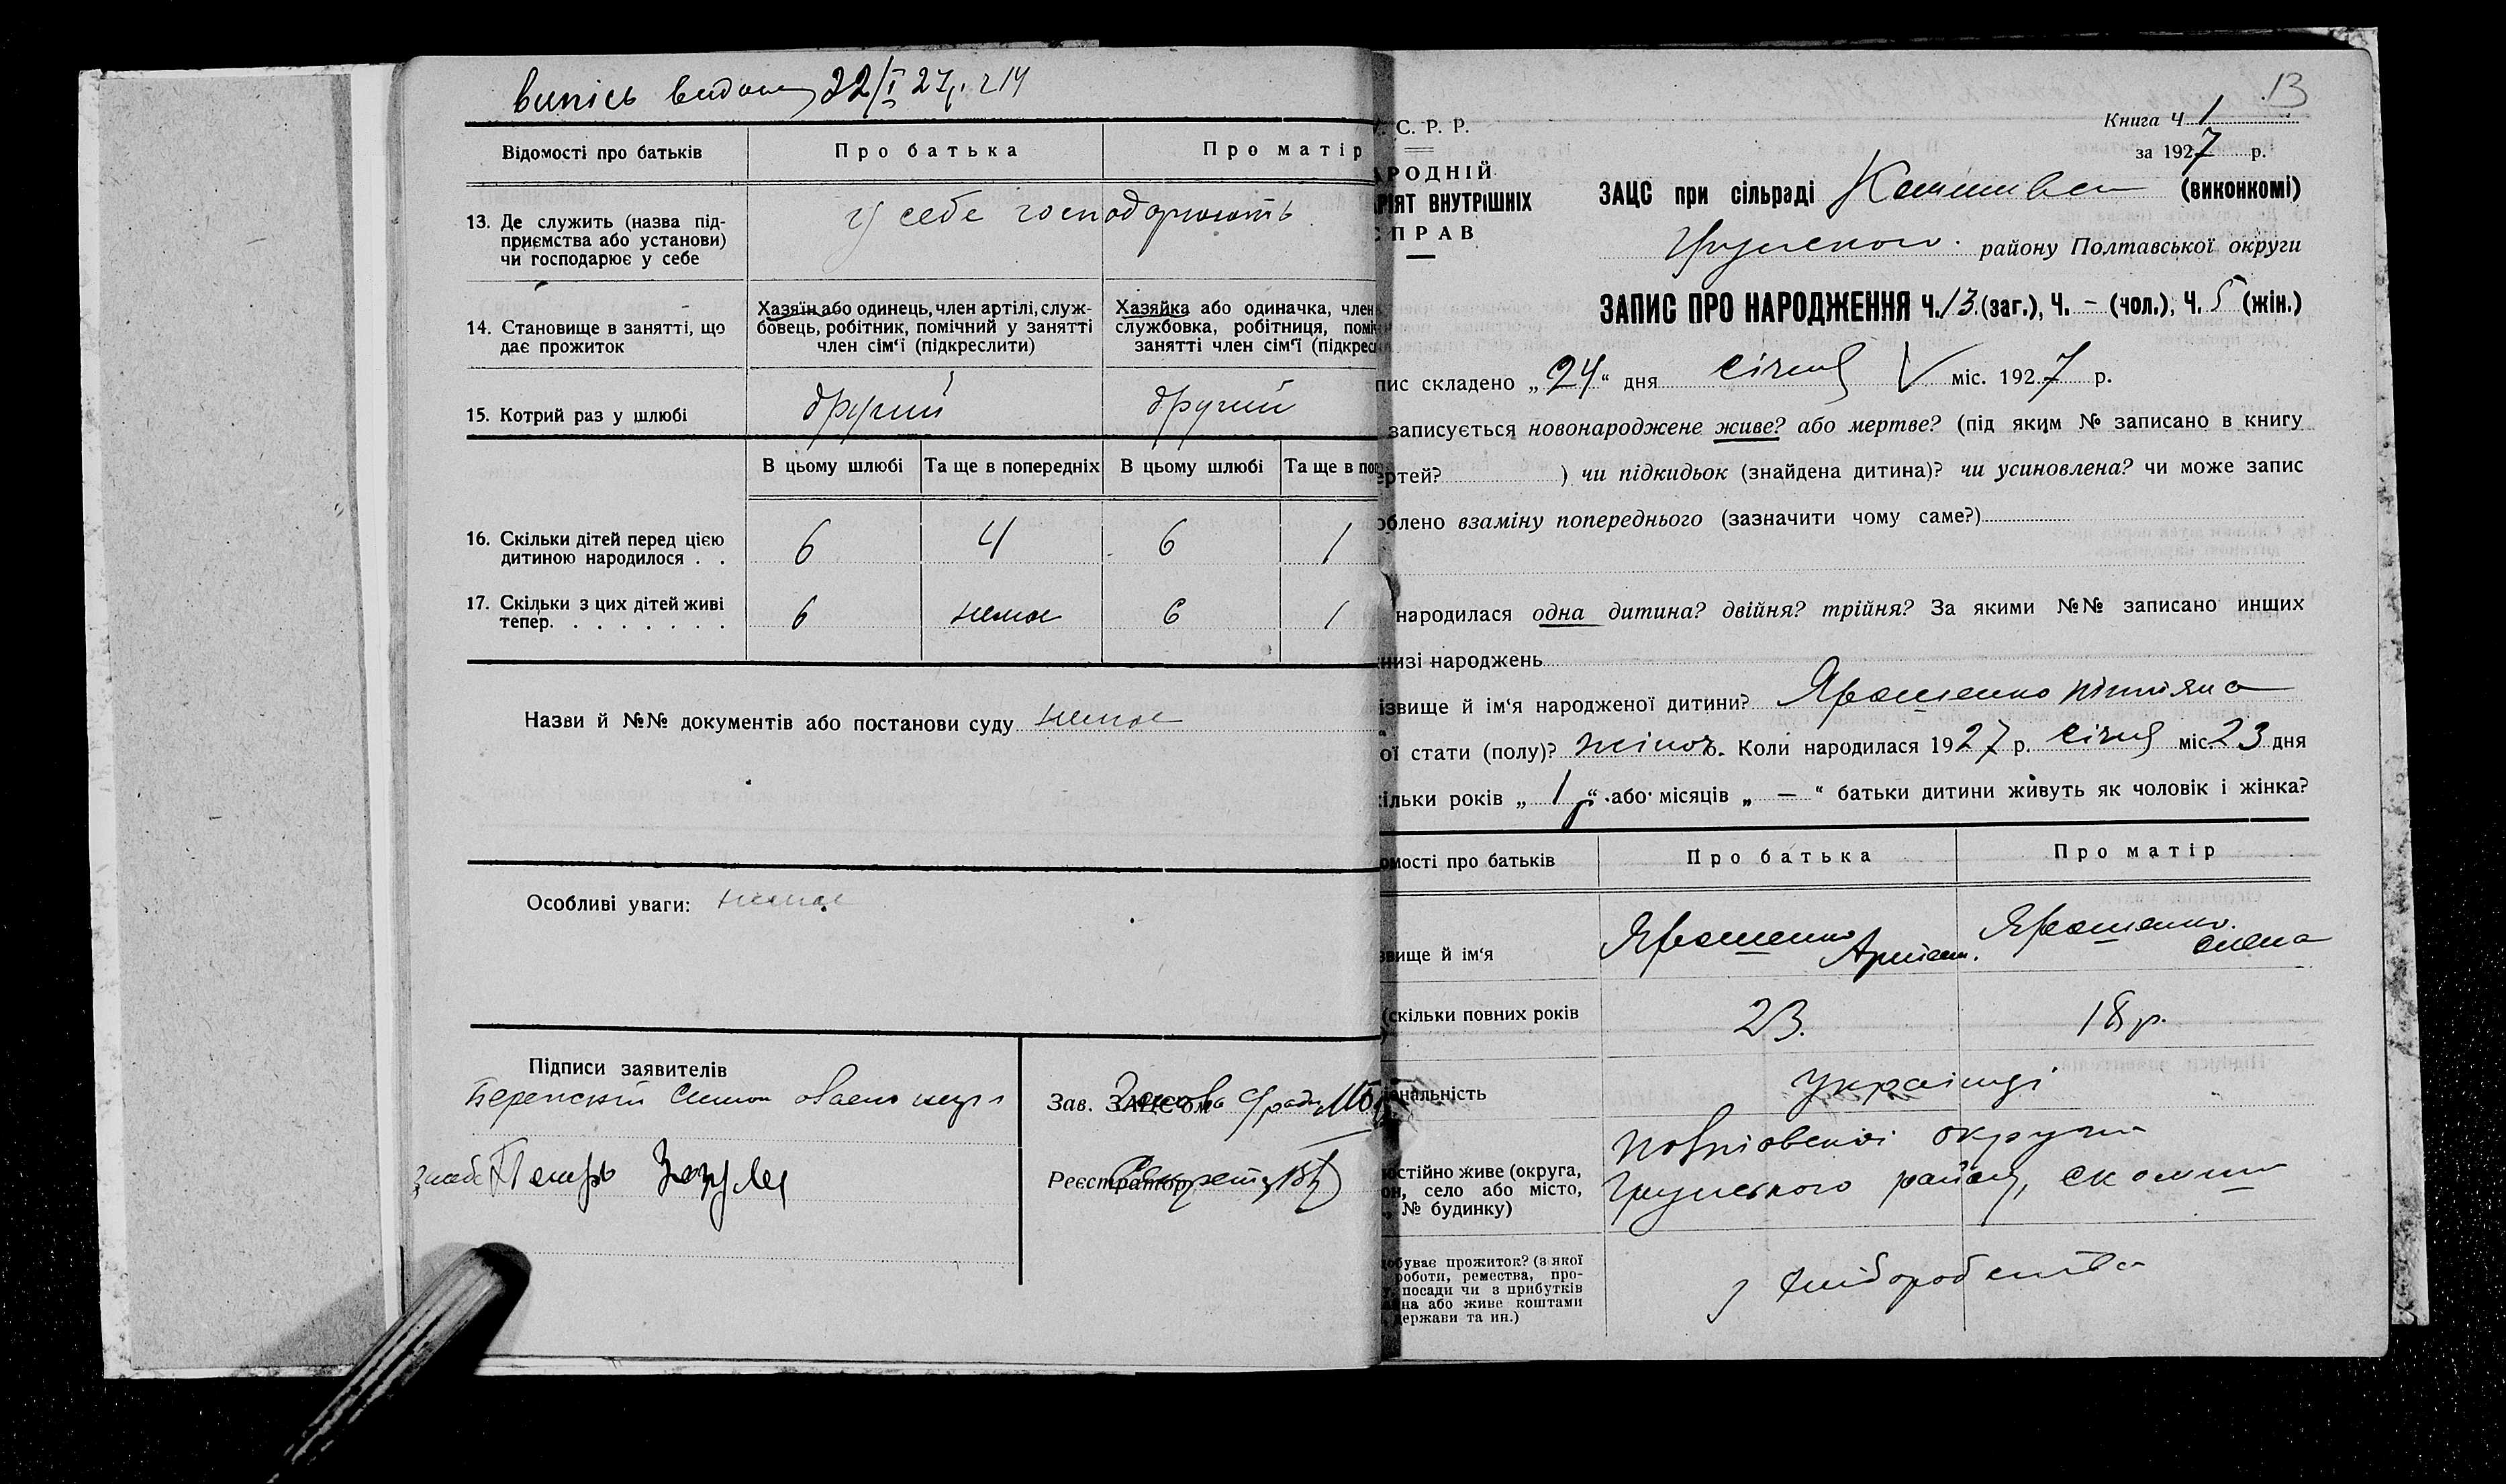 випись видана 22/I 27р. ч 14
Відомості про батьків
Про батька
Про матір
13. Де служить (назва під-
приємства або установи)
чи господарює у себе
у себе господарюють
14. Становище в занятті, що
дає прожиток
Хазяїн або одинець, член артілі, служ-
бовець, робітник, помічний у занятті
член сім‘ї (підкреслити)
Хазяйка або одиначка, член
службовка, робітниця, поміч
занятті член сім‘ї (підкрес
15. Котрий раз у шлюбі
другий
другий
В цьому шлюбі
Та ще в попередніх
В цьому шлюбі
Та ще в поп
16. Скільки дітей перед цією
дитиною народилося . .
6 4 6 1
17. Скільки з цих дітей живі
тепер. . . . . . . .
6 нема 6 1
Назви й №№ документів або постанови суду нема
Особливі уваги: нема
Підписи заявителів
Петро Зозуля
Зав. ЗАЦС‘ом
Реєстратор
13
Книга Ч 1
за 1927 р.
С. Р. Р.
АРОДНІЙ
АРІЯТ ВНУТРІШНІХ
СПРАВ
ЗАЦС при сільраді (виконкомі)
Грунського району Полтавської округи
ЗАПИС ПРО НАРОДЖЕННЯ Ч. 13 (заг.), Ч. – (чол.), Ч. 5 (жін.)
пис складено „24“ дня січня V міс. 1927 р.
записується новонароджене живе? або мертве? (під яким № записано в книгу
ертей? ) чи підкидьок (знайдена дитина)? чи усиновлена? чи може запис
облено взаміну попереднього (зазначити чому саме?)
народилася одна дитина? двійня? трійня? За якими №№ записано инщих
низі народжень
ізвище й ім‘я народженої дитини? Ярошенко
ої стати (полу)? жіноч. Коли народилася 1927 р. січня міс. 23 дня
ільки років „ 1 р “ або місяців „ — “ батьки дитини живуть як чоловік і жінка?
омості про батьків
Про батька
Про матір
звище й ім‘я
Ярошенко
Ярошенко
Олена
(скільки повних років
23.
18 р.
ональність
українці
остійно живе (округа,
он, село або місто,
№ будинку)
округи
Грунського району,
обуває прожиток? (з якої
роботи, ремества, про-
посади чи з прибутків
на або живе коштами
держави та ин.)
з хліборобства